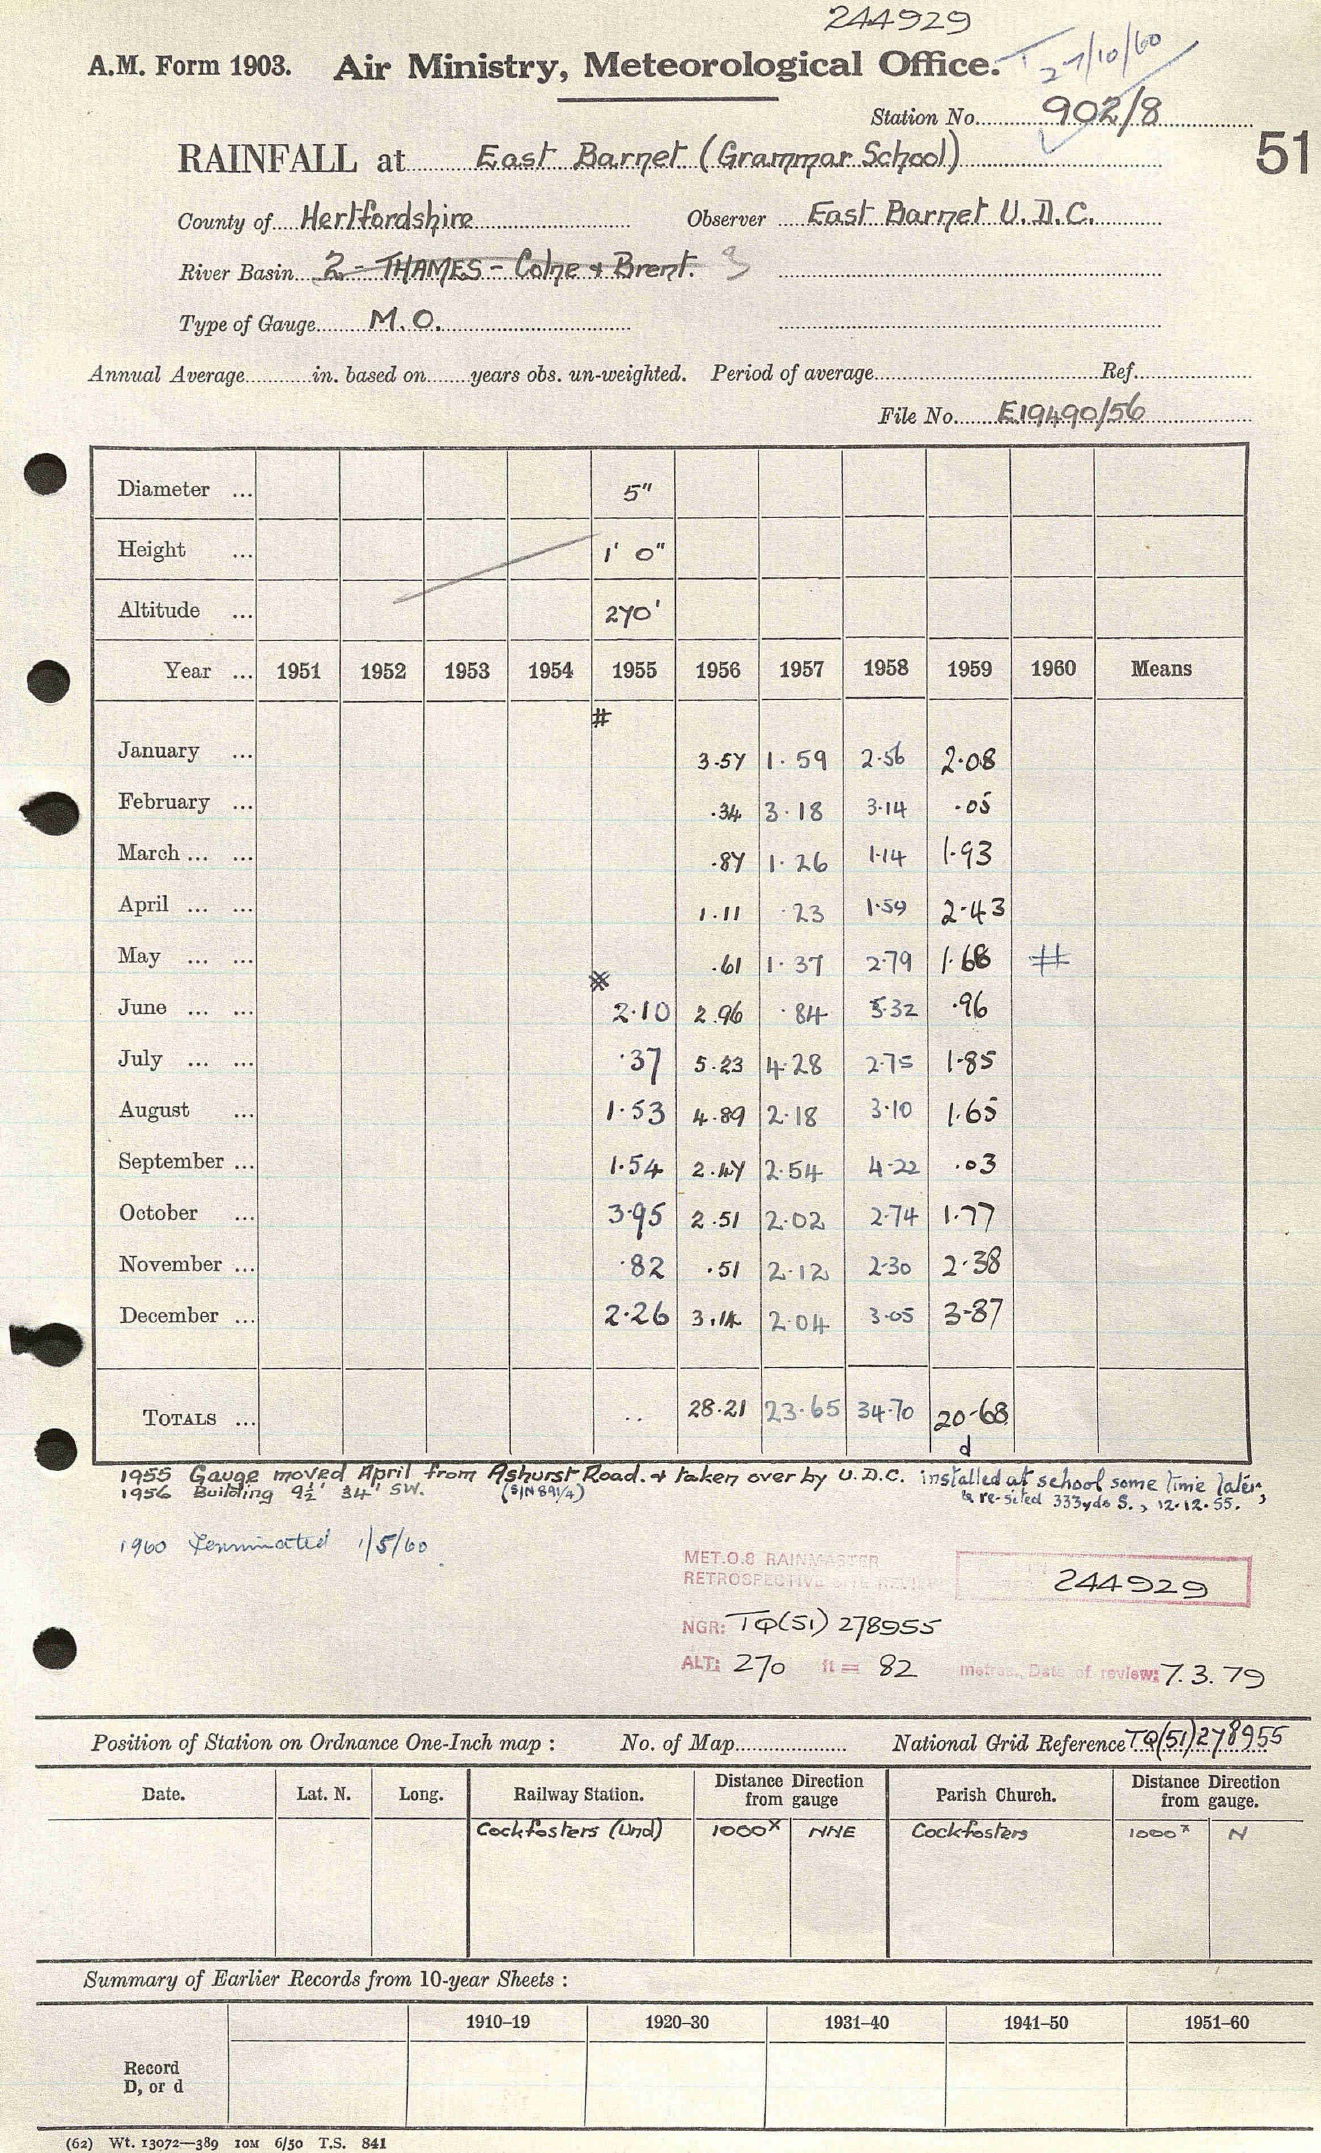 244929
A.M. Form 1903. Air Ministry, Meteorological Office. T 27/10/60
Station No. 902/8
RAINFALL at East Barnet (Grammar School) 51
County of Hertfordshire Observer East Barnet U.D.C.
River Basin 2 - THAMES - Colne & Brent. 3
Type of Gauge M.O.
Annual Average in. based on years obs. un-weighted. Period of average Ref.
File No. E19490/56
Diameter ... 5"
Height ... 1' 0"
Altitude ... 270'
Year ... 1951 1952 1953 1954 1955 1956 1957 1958 1959 1960 Means
#
January ... 3.57 1.59 2.56 2.08
February ... .34 3.18 3.14 .05
March ... ... .87 1.26 1.14 1.93
April ... ... 1.11 .23 1.59 2.43
May ... ... .61 1.37 2.79 1.68 #
June ... ... 2.10 2.96 .84 5.32 .96
July ... ... .37 5.23 4.28 2.75 1.85
August ... 1.53 4.89 2.18 3.10 1.65
September ... 1.54 2.47 2.54 4.22 .03
October ... 3.95 2.51 2.02 2.74 1.77
November ... .82 .51 2.12 2.30 2.38
December ... 2.26 3.14 2.04 3.05 3.87
TOTALS ... .. 28.21 23.65 34.70 20.68
d
1955 Gauge moved April from Ashurst Road. & taken over by U.D.C. installed at school some time later,
1956 Building 9½' 34' SW. (S/N 891/4) & re-sited 333yds S., 12.12.55.
1960 Terminated 1/5/60.
MET.O.8 RAINMASTER
RETROSPECTIVE SITE REVIEW 244929
NGR: TQ(51) 278955
ALT: 270 ft = 82 metres. Date of review: 7.3.79
Position of Station on Ordnance One-Inch map : No. of Map National Grid Reference TQ(51)278955
Date. Lat. N. Long. Railway Station. Distance from gauge Direction Parish Church. Distance from gauge. Direction
Cockfosters (Und) 1000x NNE Cockfosters 1000x N
Summary of Earlier Records from 10-year Sheets :
1910–19 1920–30 1931–40 1941–50 1951–60
Record
D, or d
(62) Wt. 13072—389 10M 6/50 T.S. 841